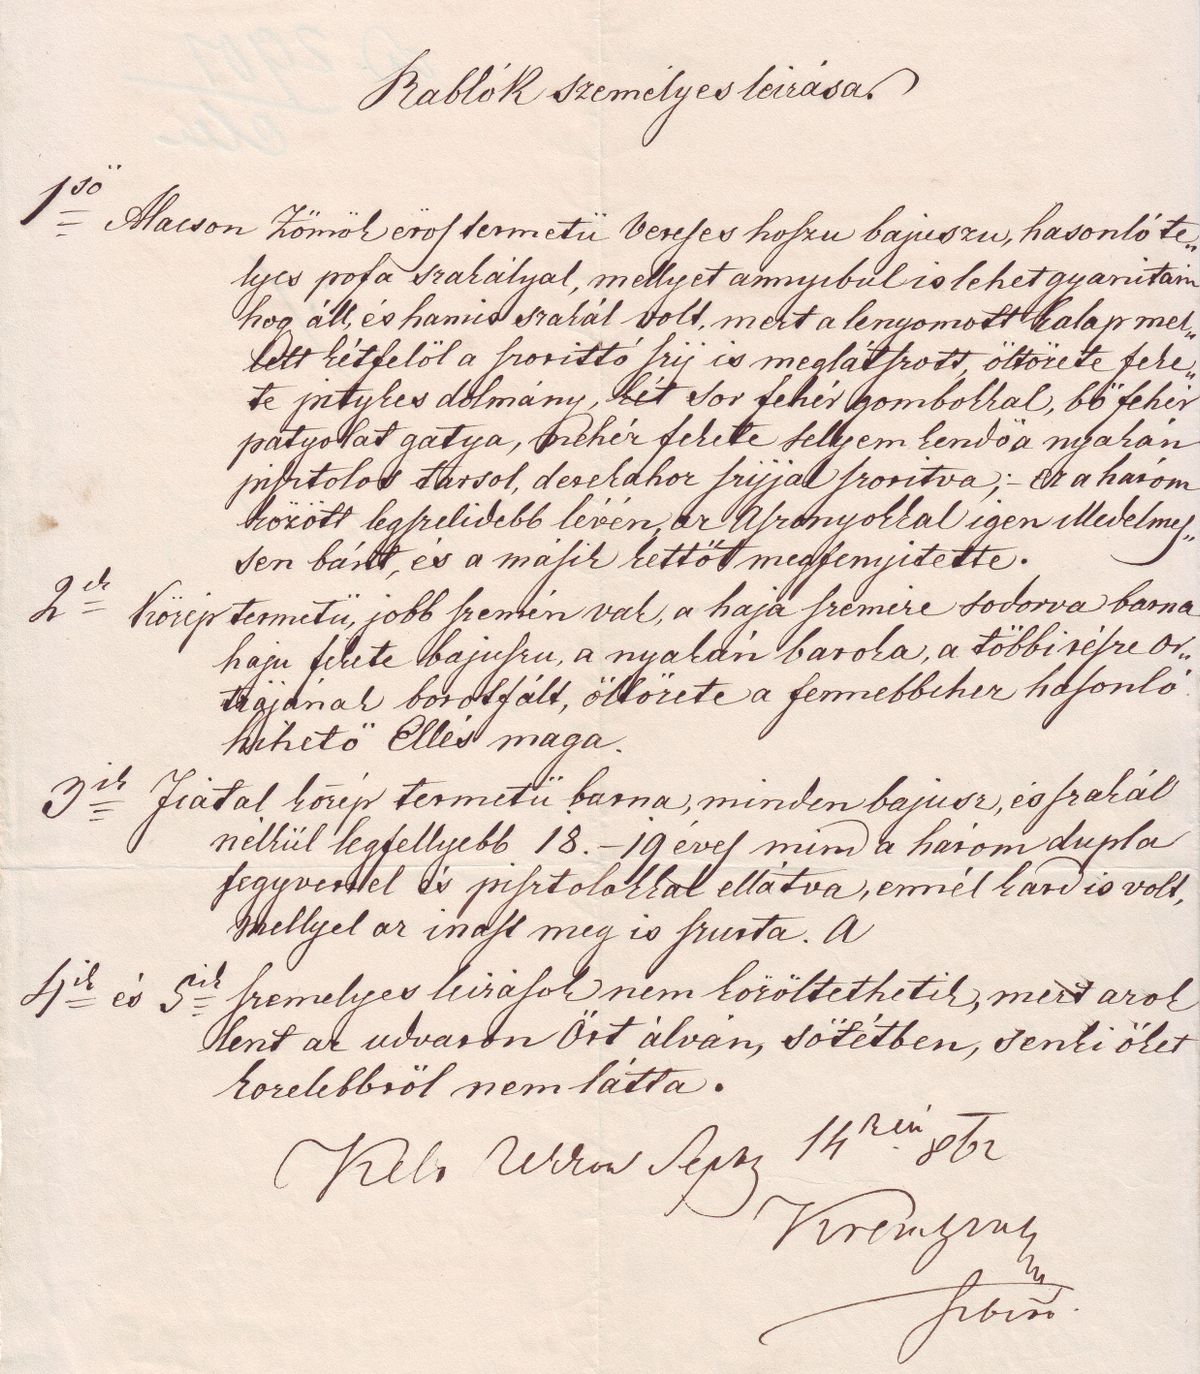 Rablók személyes leirása.
1ső Alacson Zömök erős termetü Veresses hoszu bajuszu, hasonló te„
lyes pofa szakályal, mellyet annyibul is lehet gyanitani
hog áll, és hamis szakál volt, mert a lenyomott kalap mel„
lett kétfelöl a szorittó szij is meglátszott, öltözete feke„
te pitykes dolmány, két sor fehér gombokkal, bő fehér
patyolat gatya, nehéz fekete sellyem kendö a nyakán
pisztolos társol, derekahoz szijjal szoritva; – Ez a három
között legszelidebb lévén, az Aszonyokkal igen kedelmes„
sen bánt, és a másik kettőt megfenyitette.
2ik Közép termetü, jobb szemén vak, a haja szemire sodorva barna
haju fekete bajuszu, a nyakán barcka, a többi részre or„
tzájának borotfált, öltözete a fennebbihez hasonló
hihető Ellés maga.
3ik Fiatal közép termetü barna, minden bajusz, és szakál
nélkül legfellyebb 18.–19 éves mind a három dupla
fegyverrel és pisztolokkal ellátva, ennél kard is volt,
mellyel az inast meg is szurta. A
4ik és 5ik szemelyes leirások nem közöltethetik, mert azok
lent az udvaron Őrt álván, sötétben, senki őket
kozelebbröl nem látta.
Kelt Sept 14kén 862